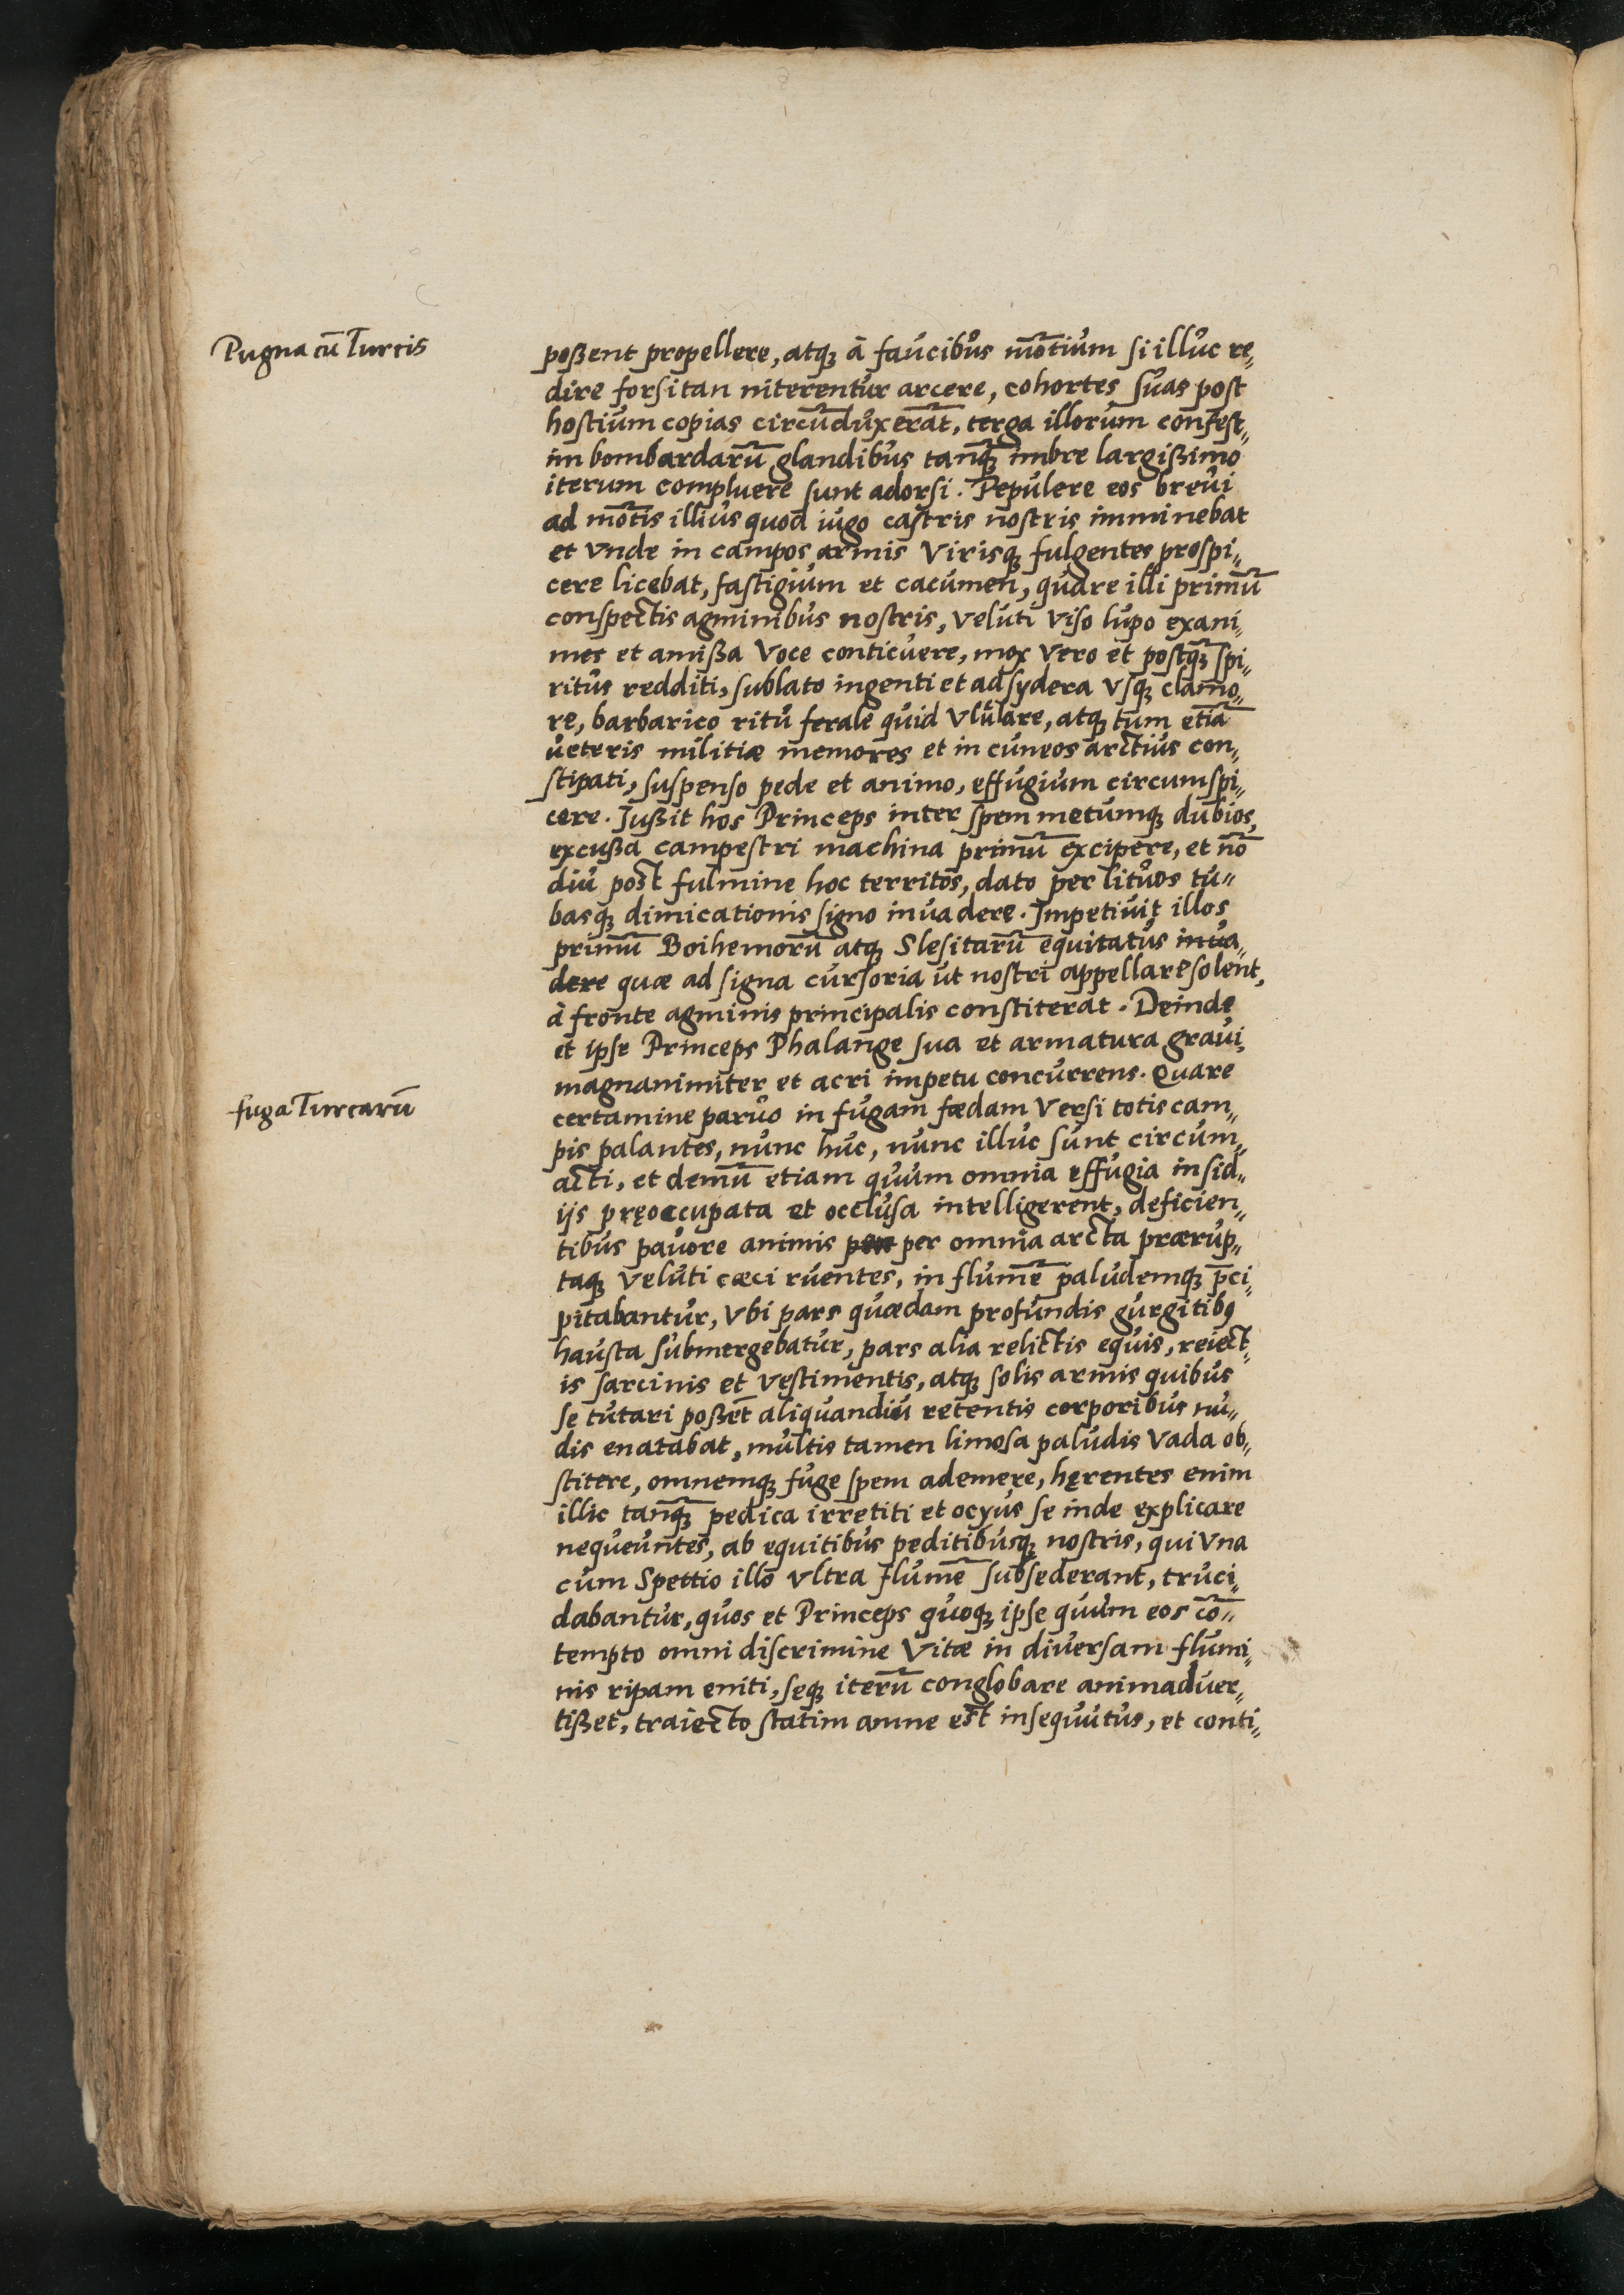 Pugna cū Turcis
poßent propellere, atqꝫ à faucibus mōtium si illuc re„
dire forsitan niterentur arcere, cohortes suas post
hostium copias circūduxerāt, terga illorum confest„
im bombardarū glandibus tanqꝫ̄ imbre largißimo
iterum compluere sunt adorsi. Pepulere eos breui
ad mōtis illius quod iugo castris nostris imminebat
et vnde in campos armis Virisqꝫ fulgentes prospi„
cere licebat, fastigium et cacumen, quare illi primū
conspectis agminibus nostris, veluti viso lupo exani„
mes et amißa Voce conticuere, mox vero et postqꝫ̄ spi„
ritus redditi, sublato ingenti et ad sydera vsqꝫ clamo„
re, barbarico ritu ferale quid vlulare, atqꝫ tum etiā
ueteris militiæ memores et in cuneos arctius con„
stipati, suspenso pede et animo, effugium circumspi„
cere. Jußit hos Princeps inter spem metumqꝫ dubios,
excußa campestri machina primū excipere, et nō
diu post fulmine hoc territos, dato per lituos tu„
basqꝫ dimicationis signo inuadere. Impetiuit illos
primū Boihemorū atqꝫ Slesitarū equitatus inua„
dere quæ ad signa cursoria ut nostri appellare solent,
à fronte agminis principalis constiterat. Deinde
et ipse Princeps Phalange sua et armatura graui,
magnanimiter et acri impetu concurrens. Quare
fuga Turcarū
certamine paruo in fugam fœdam Versi totis cam„
pis palantes, nunc huc, nunc illuc sunt circum„
acti, et demū etiam quum omnia effugia insid„
ijs pręoccupata et occlusa intelligerent, deficien„
tibus pauore animis per omnia arcta prærup„
taqꝫ veluti cæci ruentes, in flumē paludemqꝫ p̄ci„
pitabantur, vbi pars quædam profundis gurgitibꝯ
hausta submergebatur, pars alia relictis equis, reiect„
is sarcinis et vestimentis, atqꝫ solis armis quibus
se tutari poßēt aliquandiu retentis corporibus nu„
dis enatabat, multis tamen limosa paludis Vada ob„
stitere, omnemqꝫ fuge spem ademere, hęrentes enim
illic tanqꝫ̄ pedica irretiti et ocyus se inde explicare
nequeuntes, ab equitibus peditibusqꝫ nostris, qui vna
cum Spettio illo vltra flumē subsederant, truci„
dabantur, quos et Princeps quoqꝫ ipse quum eos cō„
tempto omni discrimine Vitæ in diuersam flumi„
nis ripam eniti, seqꝫ iterū conglobare animaduer„
tißet, traiecto statim amne est insequutus, et conti„